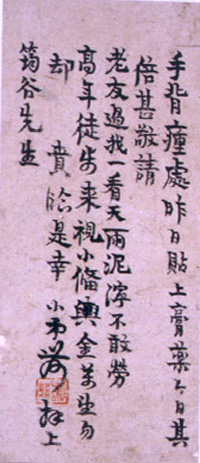 手背瘇處昨日貼上膏藥今日其
倍甚敬請
老友過我一看天雨泥濘不敢勞
高年徒步来視小備輿金勿
却 賁臨是幸 小弟拜上
筠谷先生